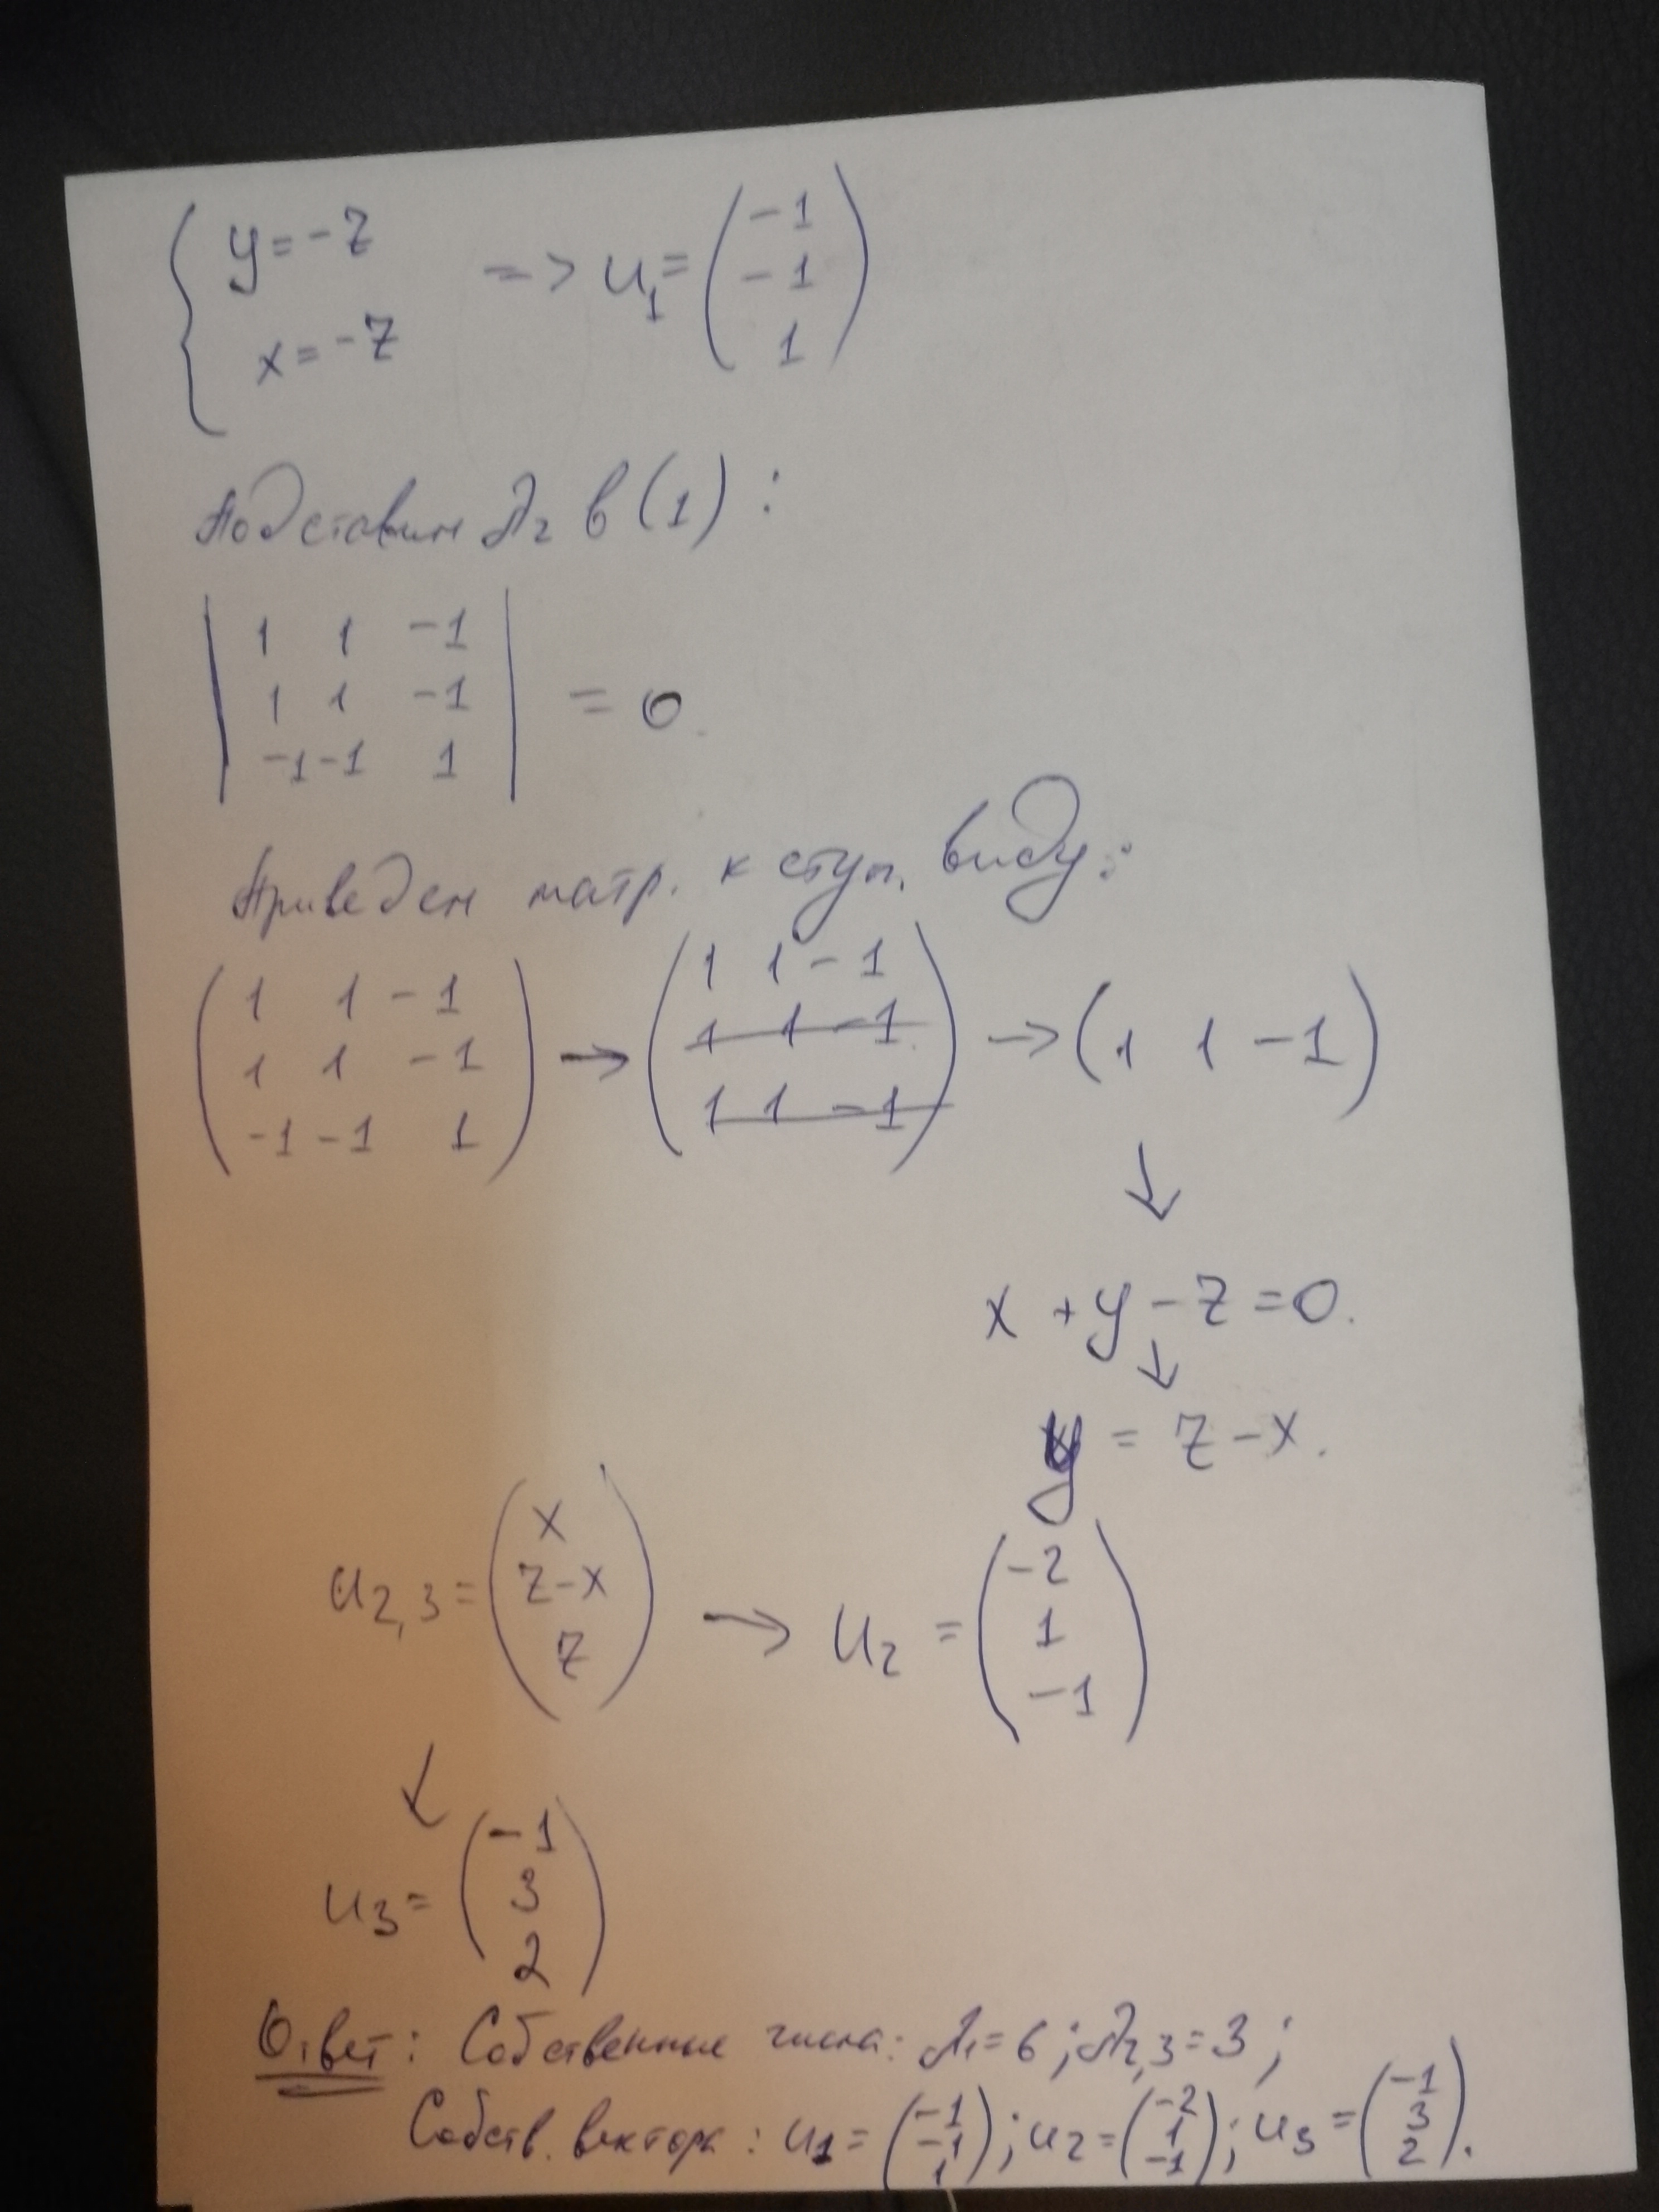 { y = -z
x = -z => u₁ = ( -1 -1 1 )
Подставим λ₂ в (1) :
| 1 1 -1 |
| 1 1 -1 | = 0.
| -1 -1 1 |
Приведем матр. к ступ. виду:
( 1 1 -1 ) → ( 1 1 -1 ) → ( 1 1 -1 )
( 1 1 -1 ) ( 1 1 -1 )
( -1 -1 1 ) ( 1 1 -1 )
↓
x + y - z = 0.
↓
y = z - x.
u₂,₃ = ( x z-x z ) → u₂ = ( -2 1 -1 )
↓
u₃ = ( -1 3 2 )
Ответ: Собственные числа: λ₁ = 6 ; λ₂,₃ = 3 ;
Собств. вектора : u₁ = ( -1 -1 1 ) ; u₂ = ( -2 1 -1 ) ; u₃ = ( -1 3 2 ).